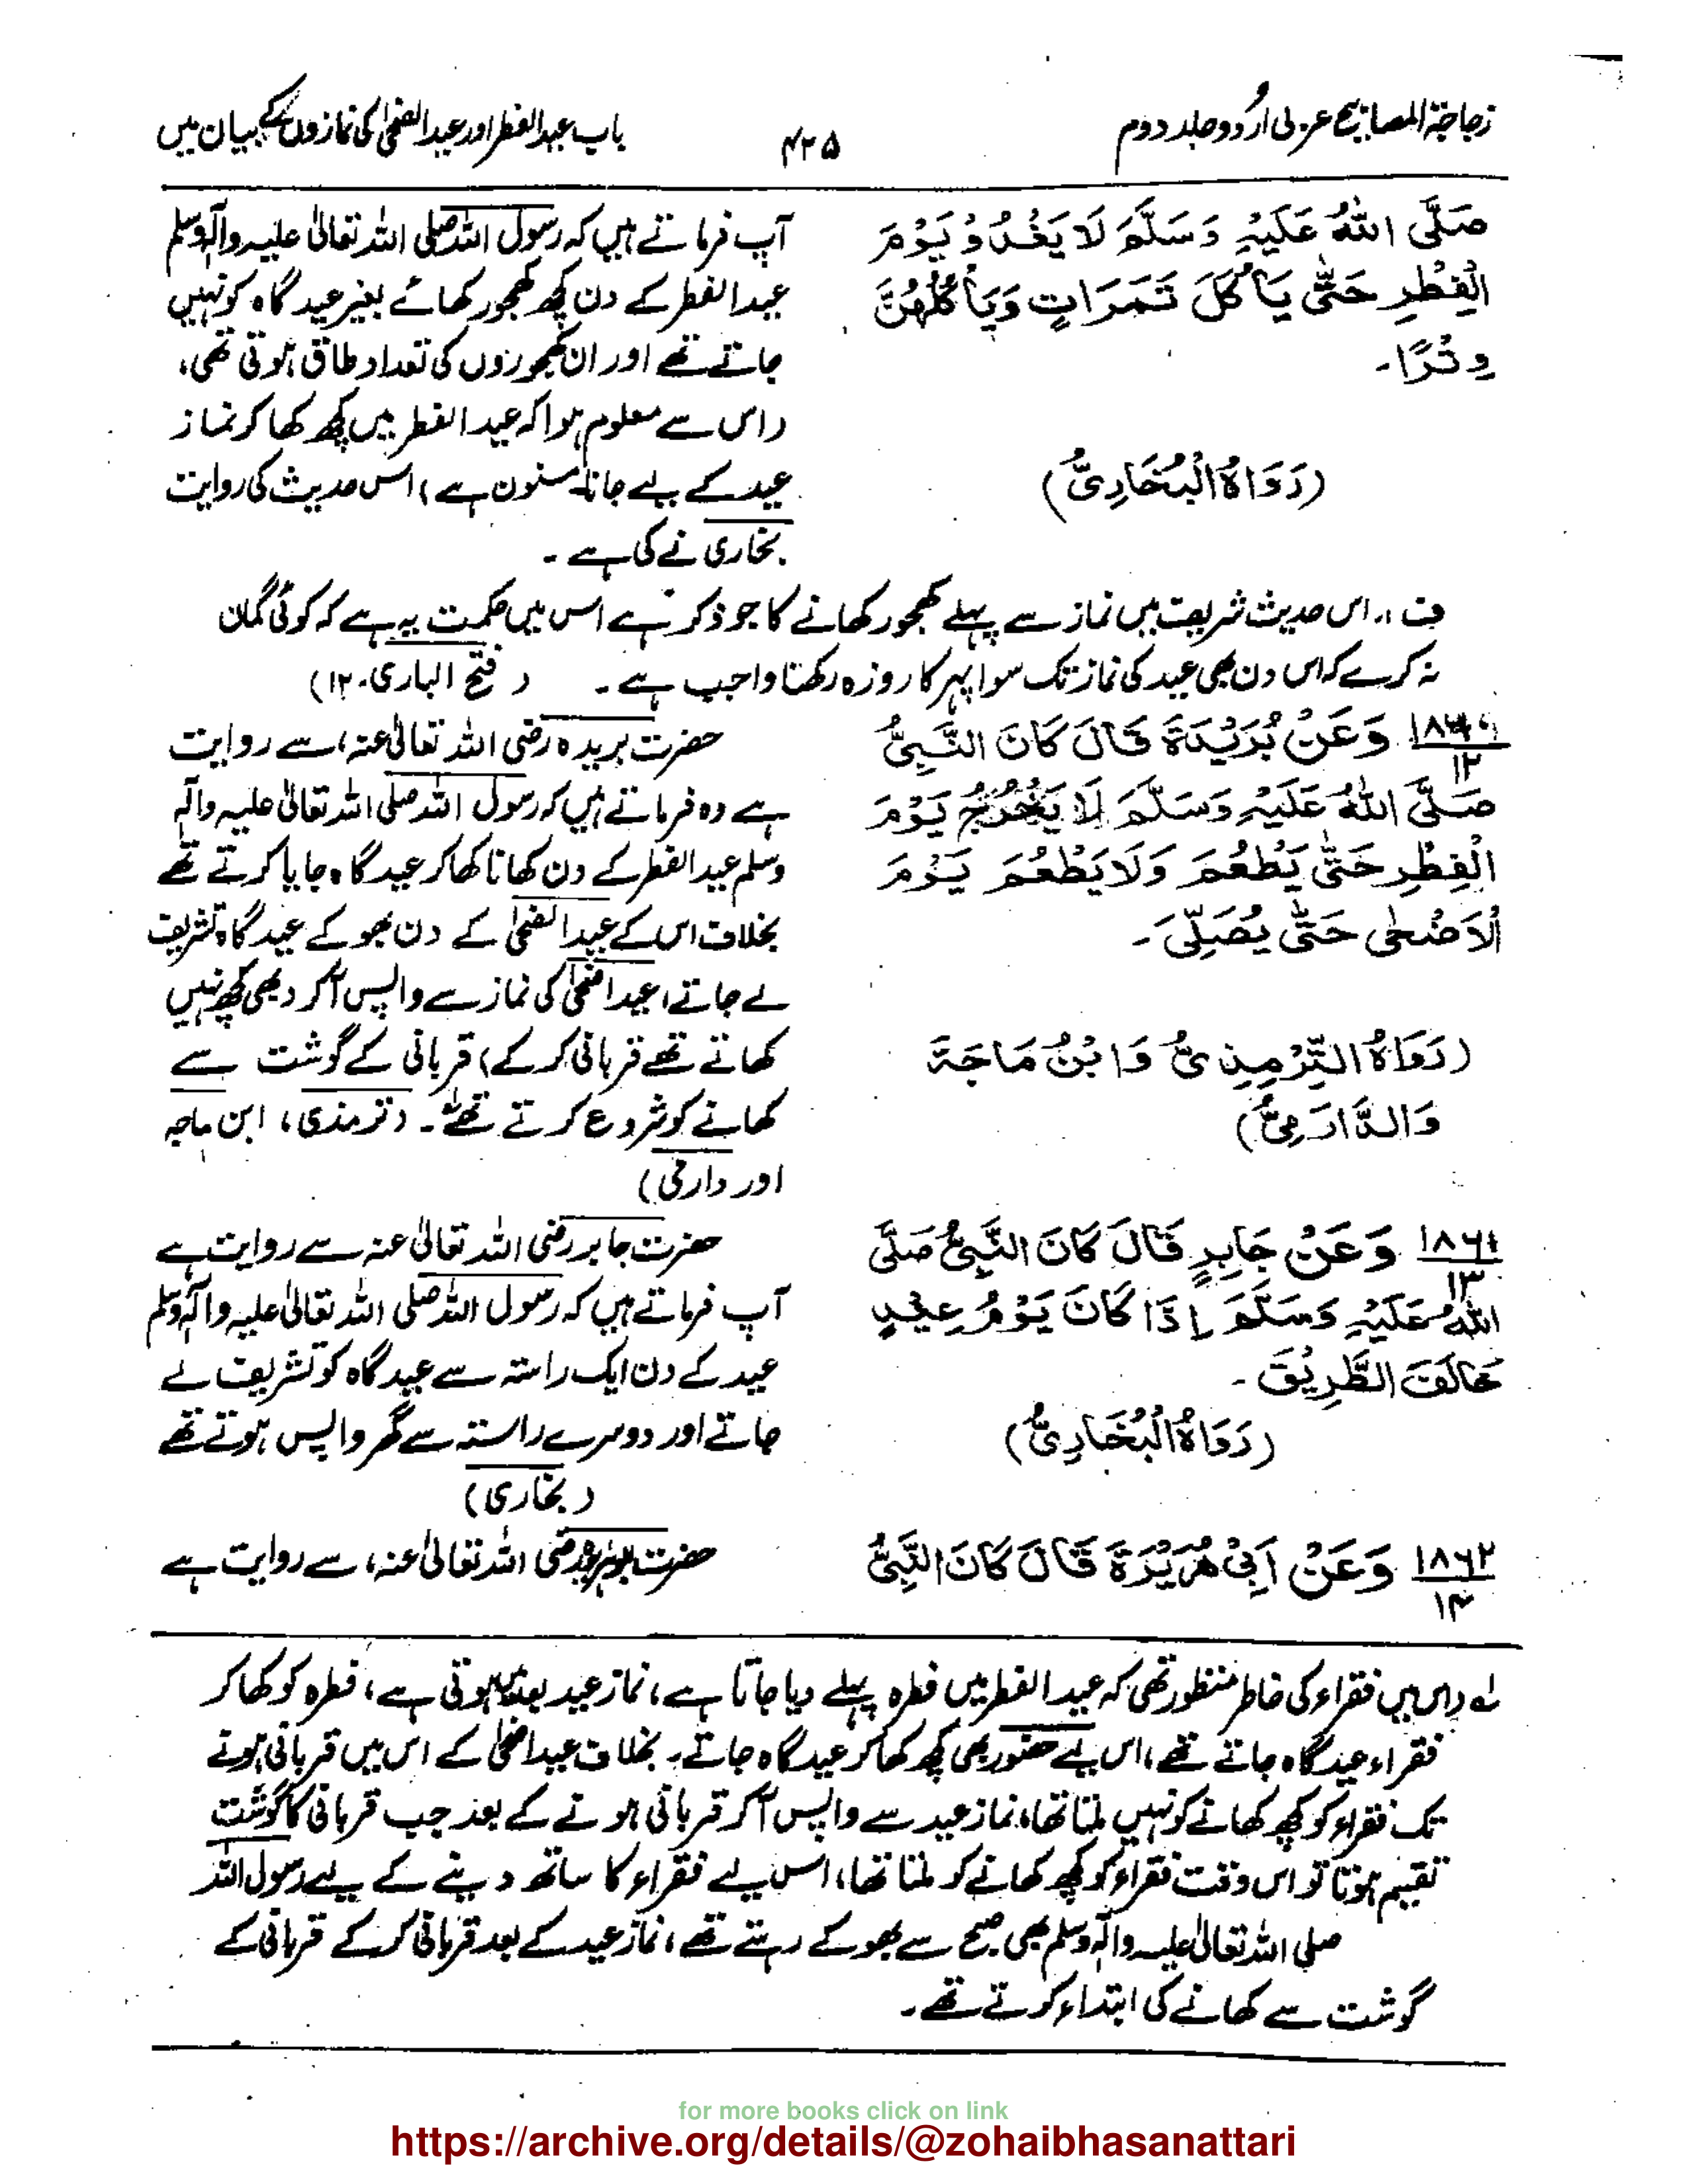 زجاجۃ المصابیح عربی اُردو جلد دوم
۴۲۵
باب عید الفطر اور عید الضحیٰ کی نمازوں کے بیان میں
صَلَّی اللّٰهُ عَلَیْهِ وَسَلَّمَ لَا یَغْدُوْ یَوْمَ
الْفِطْرِ حَتّٰی یَأْکُلَ تَمَرَاتٍ وَیَأْکُلُهُنَّ
وِتْرًا۔
(رَوَاهُ الْبُخَارِیُّ)
آپ فرماتے ہیں کہ رسول اللہ صلی اللہ تعالیٰ علیہ وآلہٖ وسلم
عید الفطر کے دن کچھ کھجور کھائے بغیر عید گاہ کو نہیں
جاتے تھے اور ان کھجوروں کی تعداد طاق ہوتی تھی،
(اس سے معلوم ہوا کہ عید الفطر میں کچھ کھا کر نماز
عید کے لیے جانا مسنون ہے) اس حدیث کی روایت
بخاری نے کی ہے۔
ف:۔ اس حدیث شریف میں نماز سے پہلے کھجور کھانے کا جو ذکر ہے اس میں حکمت یہ ہے کہ کوئی گمان
نہ کرے کہ اس دن بھی عید کی نماز تک سوا پہر کا روزہ رکھنا واجب ہے۔ (فتح الباری۔۱۲)
۱۸۶۰/۱۲ وَعَنْ بُرَیْدَةَ قَالَ کَانَ النَّبِیُّ
صَلَّی اللّٰهُ عَلَیْهِ وَسَلَّمَ لَا یَخْرُجُ یَوْمَ
الْفِطْرِ حَتّٰی یَطْعَمَ وَلَا یَطْعَمَ یَوْمَ
الْاَضْحٰی حَتّٰی یُصَلِّیَ۔
(رَوَاهُ التِّرْمِذِیُّ وَابْنُ مَاجَةَ
وَالدَّارَمِیُّ)
حضرت بریدہ رضی اللہ تعالیٰ عنہ، سے روایت
ہے وہ فرماتے ہیں کہ رسول اللہ صلی اللہ تعالیٰ علیہ وآلہٖ
وسلم عید الفطر کے دن کھانا کھا کر عید گاہ جایا کرتے تھے
بخلاف اس کے عید الضحیٰ کے دن بھوکے عید گاہ تشریف
لے جاتے، عید اضحیٰ کی نماز سے واپس آکر (بھی کچھ نہیں
کھاتے تھے قربانی کرکے) قربانی کے گوشت سے
کھانے کو شروع کرتے تھے۔ (ترمذی، ابن ماجہ
اور دارمی)
۱۸۶۱/۱۳ وَعَنْ جَابِرٍ قَالَ کَانَ النَّبِیُّ صَلَّی
اللّٰهُ عَلَیْهِ وَسَلَّمَ اِذَا کَانَ یَوْمُ عِیْدٍ
خَالَفَ الطَّرِیْقَ۔
(رَوَاهُ الْبُخَارِیُّ)
حضرت جابر رضی اللہ تعالیٰ عنہ سے روایت ہے
آپ فرماتے ہیں کہ رسول اللہ صلی اللہ تعالیٰ علیہ وآلہٖ وسلم
عید کے دن ایک راستہ سے عید گاہ کو تشریف لے
جاتے اور دوسرے راستہ سے گھر واپس ہوتے تھے
(بخاری)
۱۸۶۲/۱۴ وَعَنْ اَبِیْ هُرَیْرَةَ قَالَ کَانَ النَّبِیُّ
حضرت ابوہریرہ رضی اللہ تعالیٰ عنہ، سے روایت ہے
لے (اس میں فقراء کی خاطر منظور تھی کہ عید الفطر میں فطرہ پہلے دیا جاتا ہے، نماز عید بعد میں ہوتی ہے، فطرہ کو کھا کر
فقراء عید گاہ جاتے تھے، اس لیے حضور بھی کچھ کھا کر عید گاہ جاتے۔ بخلاف عید اضحیٰ کے اس میں قربانی ہونے
تک فقراء کو کچھ کھانے کو نہیں ملتا تھا، نماز عید سے واپس آکر قربانی ہونے کے بعد جب قربانی کا گوشت
تقیسم ہوتا تو اس وقت فقراء کو کچھ کھانے کو ملتا تھا، اس لیے فقراء کا ساتھ دینے کے لیے رسول اللہ
صلی اللہ تعالیٰ علیہ وآلہٖ وسلم بھی صبح سے بھوکے رہتے تھے، نماز عید کے بعد قربانی کرکے قربانی کے
گوشت سے کھانے کی ابتداء کرتے تھے۔
for more books click on link
https://archive.org/details/@zohaibhasanattari